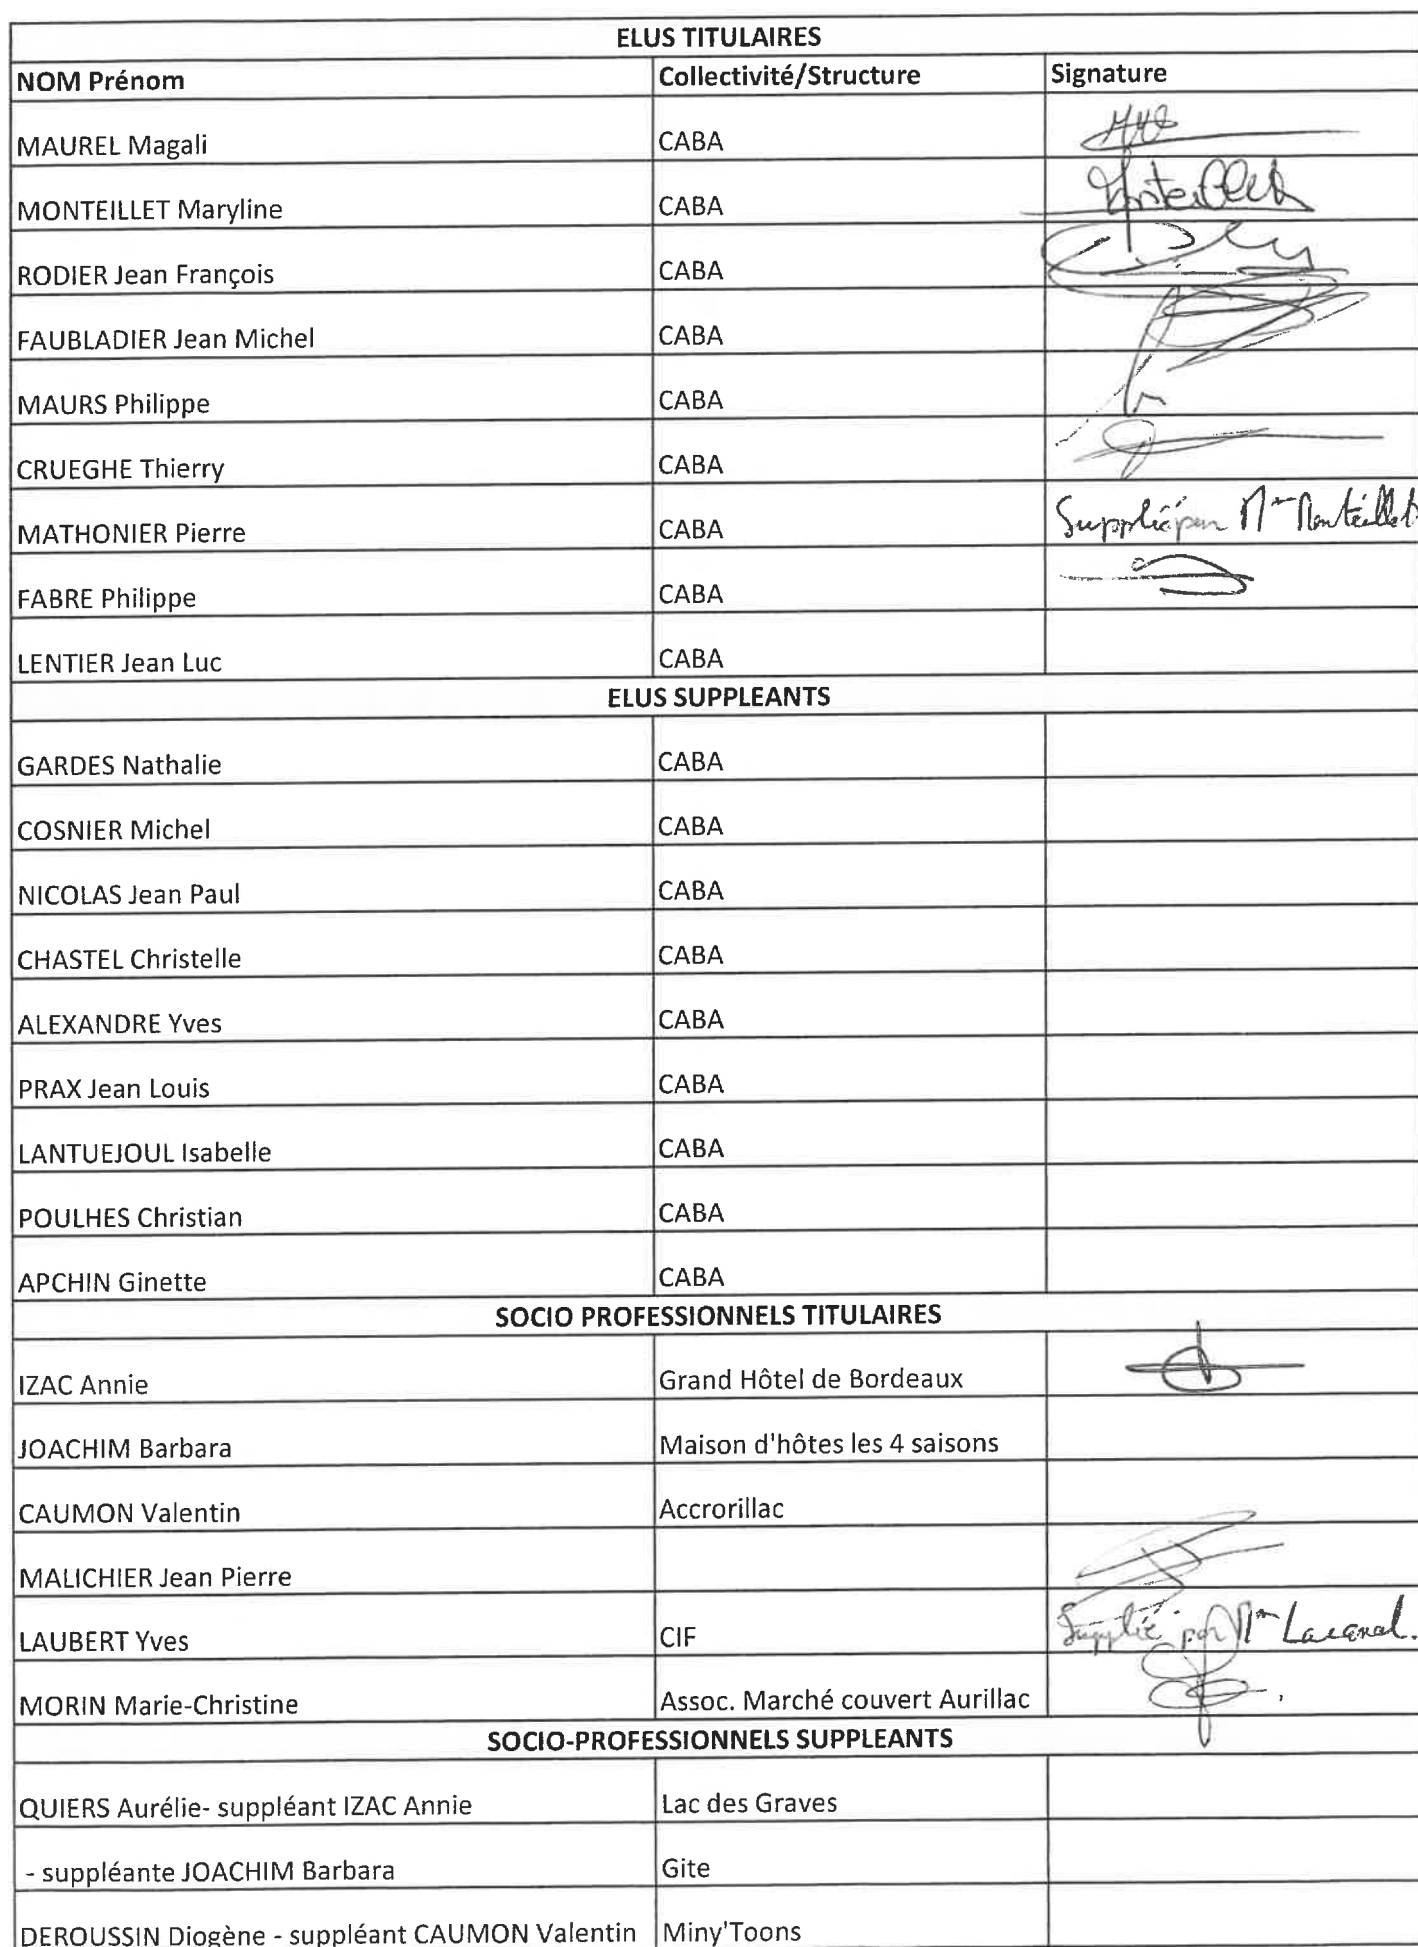 ELUS TITULAIRES
NOM Prénom Collectivité/Structure Signature
MAUREL Magali CABA
MONTEILLET Maryline CABA Monteillet
RODIER Jean François CABA
FAUBLADIER Jean Michel CABA
MAURS Philippe CABA
CRUEGHE Thierry CABA
MATHONIER Pierre CABA Supplié par Mme Monteillet
FABRE Philippe CABA
LENTIER Jean Luc CABA
ELUS SUPPLEANTS
GARDES Nathalie CABA
COSNIER Michel CABA
NICOLAS Jean Paul CABA
CHASTEL Christelle CABA
ALEXANDRE Yves CABA
PRAX Jean Louis CABA
LANTUEJOUL Isabelle CABA
POULHES Christian CABA
APCHIN Ginette CABA
SOCIO PROFESSIONNELS TITULAIRES
IZAC Annie Grand Hôtel de Bordeaux
JOACHIM Barbara Maison d'hôtes les 4 saisons
CAUMON Valentin Accrorillac
MALICHIER Jean Pierre
LAUBERT Yves CIF Supplié par Mme Lacanal.
MORIN Marie-Christine Assoc. Marché couvert Aurillac
SOCIO-PROFESSIONNELS SUPPLEANTS
QUIERS Aurélie- suppléant IZAC Annie Lac des Graves
- suppléante JOACHIM Barbara Gite
DEROUSSIN Diogène - suppléant CAUMON Valentin Miny'Toons